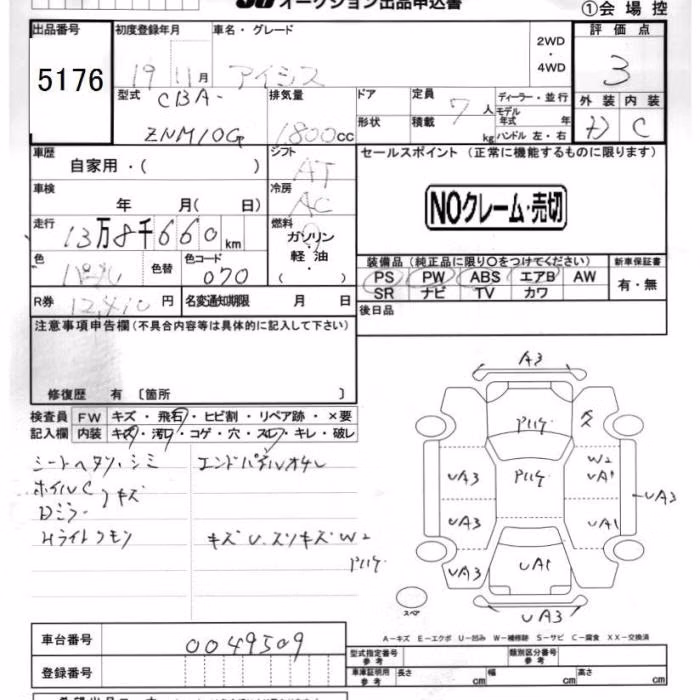 オークション出品申込書
①会場控
出品番号 初度登録年月 車名・グレード 2WD・4WD 評価点
5176 19 11月 アイシス 3
型式 CBA- 排気量 ドア 定員 7人 ディーラー・並行 外装 内装
ZNM10G 1800cc 形状 積載 kg モデル年式 年 ハンドル 左・右 D C
車歴 シフト セールスポイント (正常に機能するものに限ります)
自家用・( ) AT
車検 冷房 NOクレーム・売切
年 月( 日) AC
走行 13万8千660km 燃料 ガソリン・軽油・( )
色 パール 色替 色コード 070 装備品 (純正品に限り○をつけてください) 新車保証書
PS PW ABS エアB AW 有・無
SR ナビ TV カワ
R券 12,410円 名変通知期限 月 日 後日品
注意事項申告欄 (不具合内容等は具体的に記入して下さい)
修復歴 有 〔箇所 〕
検査員 FW キズ・飛石・ヒビ割・リペア跡・×要
記入欄 内装 キズ・汚レ・コゲ・穴・スレ・キレ・破レ
シートヘタリ・シミ エンドパネルオサレ
ホイルC
Dミラー キズ
Hライトクモリ キズU.スリキズW2
アハゲ
A3
アハゲ
アハゲ
UA3 W2 UA1
UA3
UA3 UA1
UA3 UA1
UA3
スペア
A-キズ E-エクボ U-凹み W-補修跡 S-サビ C-腐食 XX-交換済
車台番号 0049509 型式指定番号 参考 類別区分番号 参考
登録番号 車庫証明用 参考 長さ cm 幅 cm 高さ cm